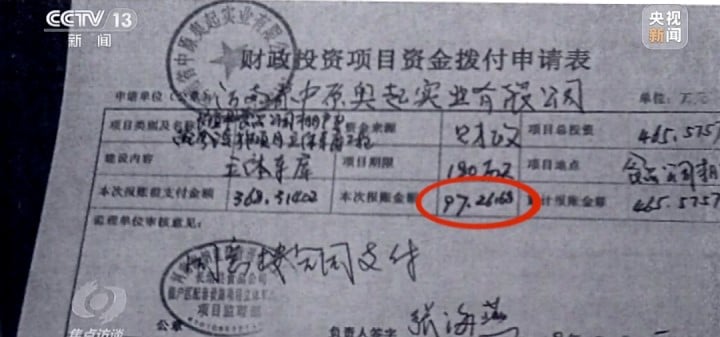 CCTV 13
新闻
央视
新闻
财政投资项目资金拨付申请表
申请单位(公章) 河南省中原奥起实业有限公司 单位:万元
项目类别及名称 资金来源 财政 项目总投资 465.5757
建设内容 立体车库 项目期限 180 项目地点
本次报账前支付金额 368.31402 本次报账金额 97.2668 累计报账金额 465.5757
监理单位审核意见:
同意按合同支付
项目监理部
公章 负责人签字 张海燕
焦点访谈